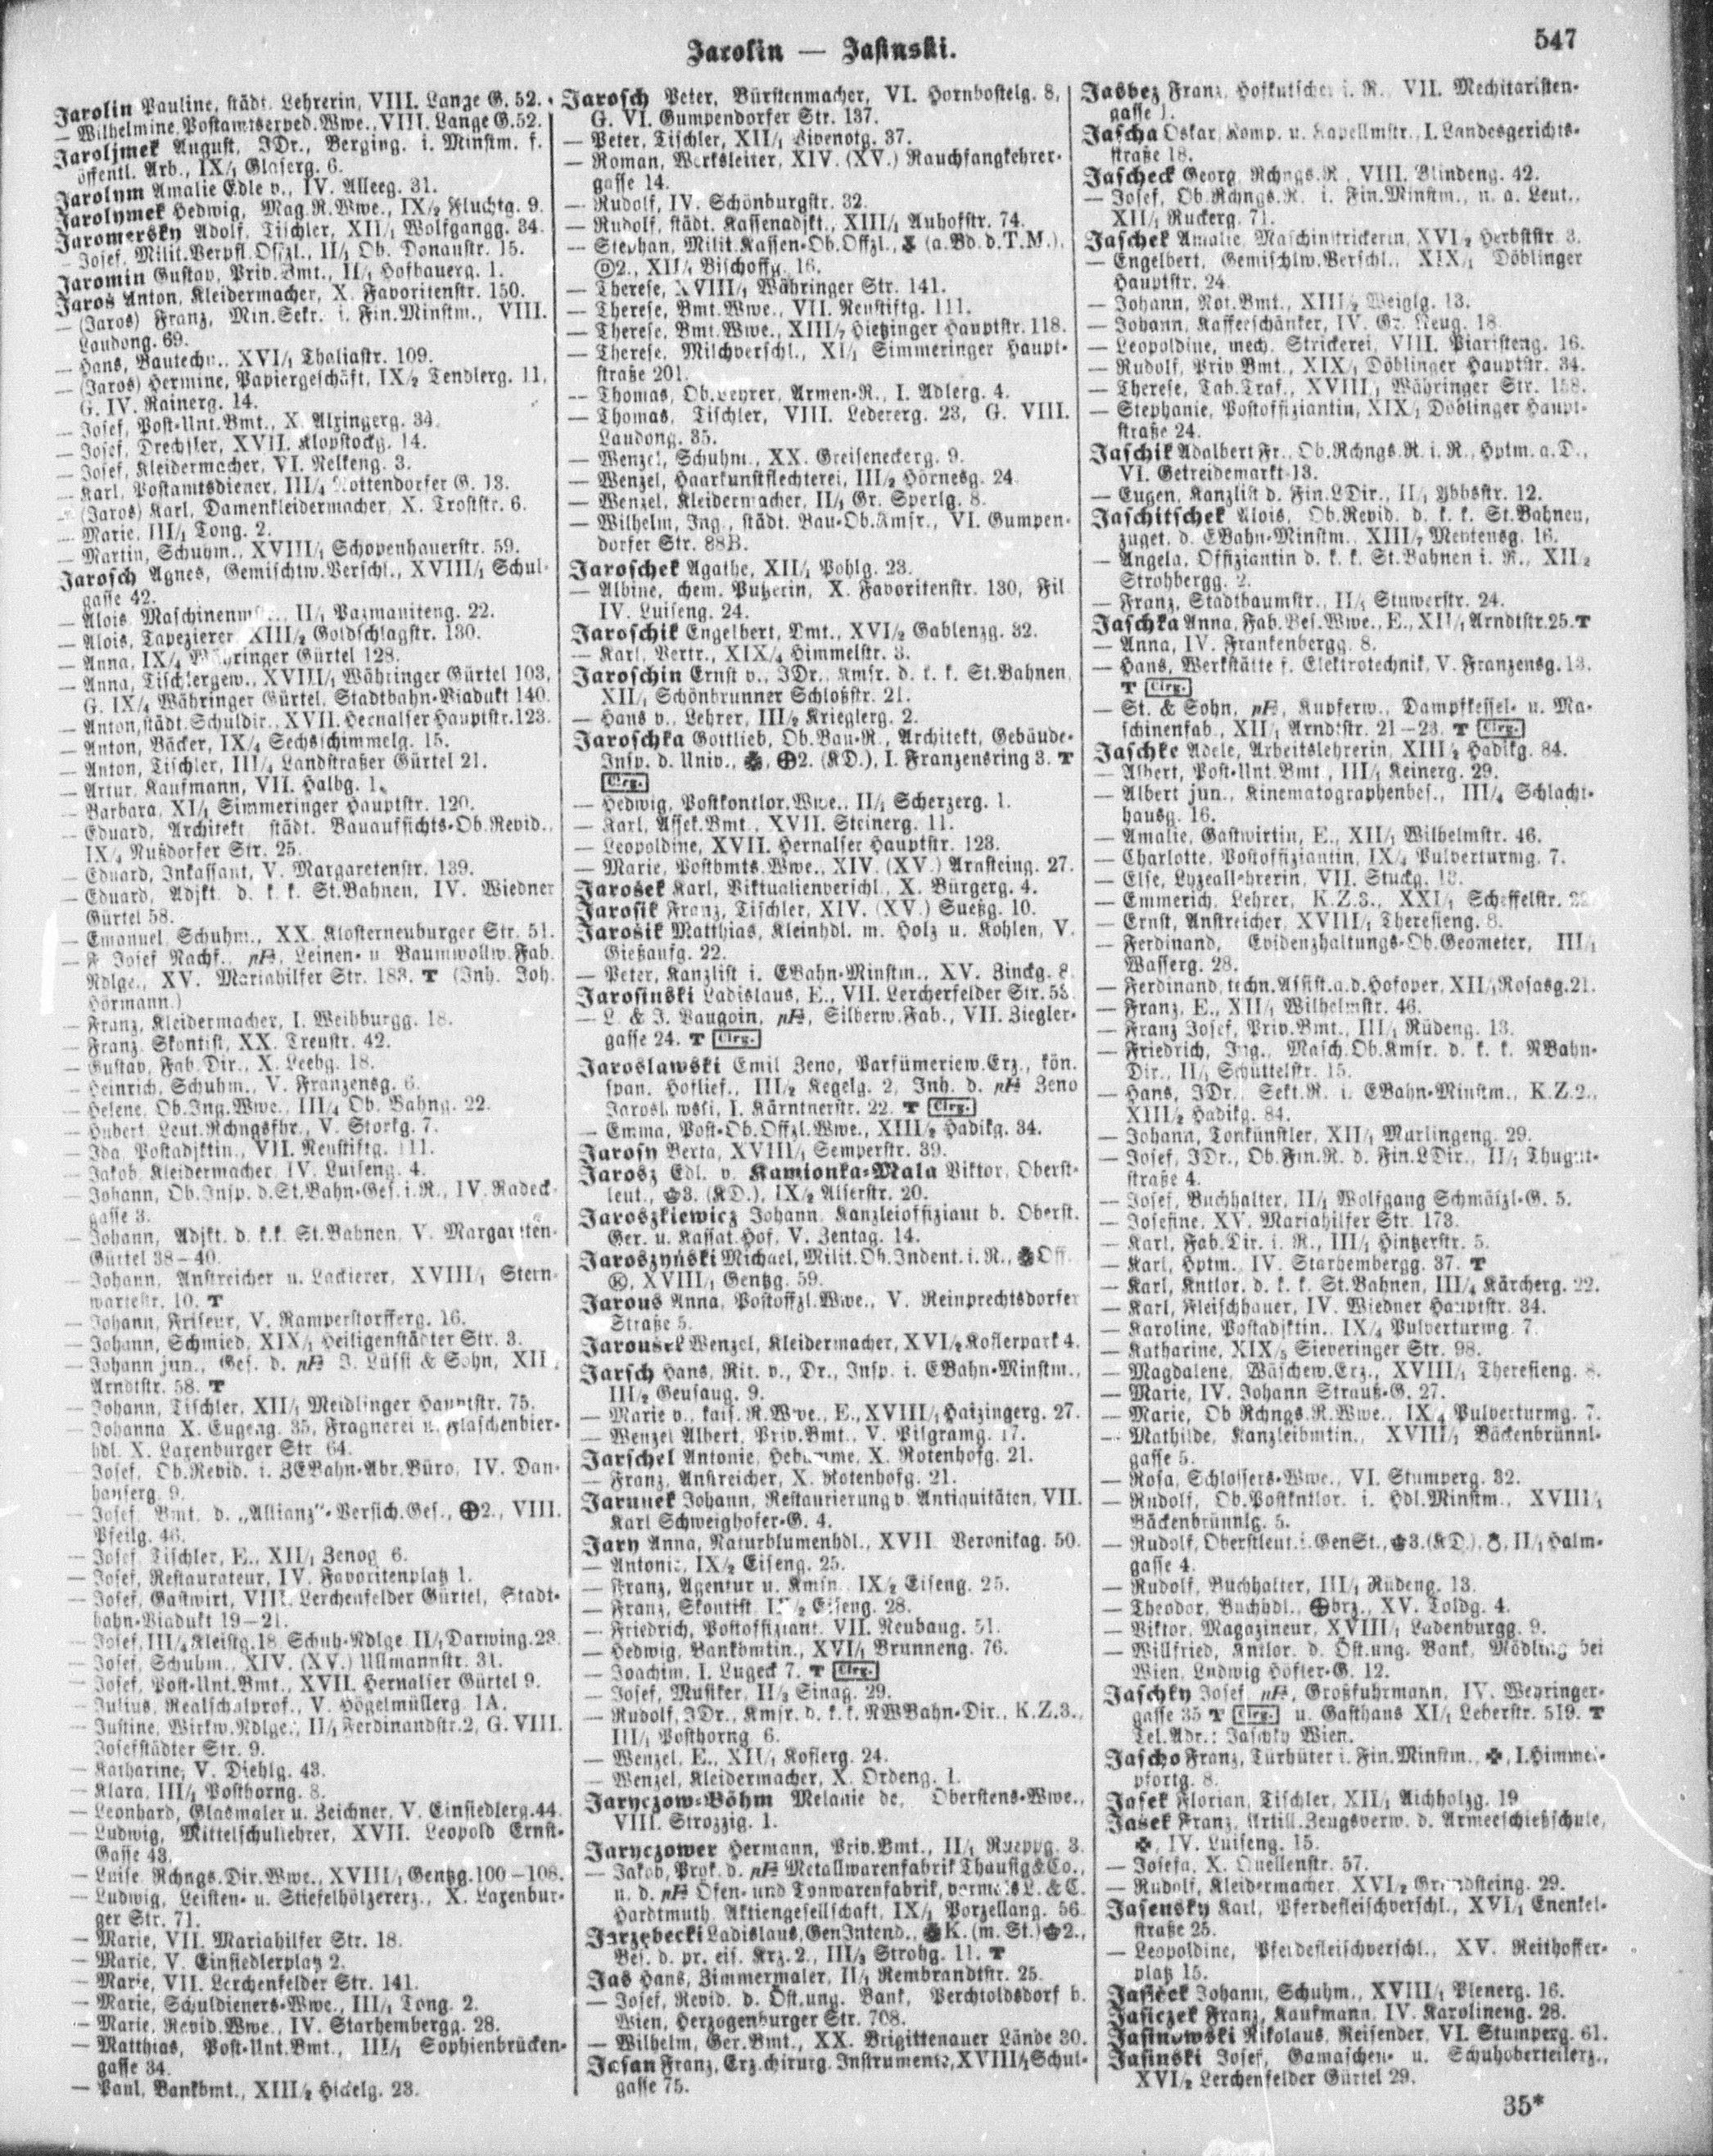 Jarolin — Jasinski.
547
Jarolin Pauline, städt. Lehrerin, VIII. Lange G. 52.
— Wilhelmine, Postamtsexped. Wwe., VIII. Lange G. 52.
Jarolimek August, JDr., Berging. i. Minstm. f.
öffentl. Arb., IX/1 Glaserg. 6.
Jarolym Amalie Edle v., IV. Alleeg. 31.
Jarolymek Hedwig, Mag.R.Wwe., IX/2 Fluchtg. 9.
Jaromersky Adolf, Tischler, XII/1 Wolfgangg. 34.
— Josef, Milit.Verpfl.Offzl., II/1 Ob. Donaustr. 15.
Jaromin Gustav, Priv.Bmt., II/1 Hofbauerg. 1.
Jaros Anton, Kleidermacher, X. Favoritenstr. 150.
— (Jaros) Franz, Min.Sekr. i. Fin.Minstm., VIII.
Laudong. 69.
— Hans, Bautechn., XVI/1 Thaliastr. 109.
— (Jaros) Hermine, Papiergeschäft, IX/2 Tendlerg. 11,
G. IV. Rainerg. 14.
— Josef, Post-Unt.Bmt., X. Alxingerg. 34.
— Josef, Drechsler, XVII. Klopstockg. 14.
— Josef, Kleidermacher, VI. Nelkeng. 3.
— Karl, Postamtsdiener, III/4 Kottendorfer G. 13.
— (Jaros) Karl, Damenkleidermacher, X. Troststr. 6.
— Marie, III/1 Tong. 2.
— Martin, Schuhm., XVIII/1 Schopenhauerstr. 59.
Jarosch Agnes, Gemischtw.Verschl., XVIII/1 Schul-
gasse 42.
— Alois, II/1 Pazmaniteng. 22.
— Alois, Tapezierer, XIII/2 Goldschlagstr. 130.
— Anna, IX/4 Währinger Gürtel 128.
— Anna, Tischlergew., XVIII/1 Währinger Gürtel 103,
G. IX/4 Währinger Gürtel, Stadtbahn-Viadukt 140.
— Anton, städt. Schuldir., XVII. Hernalser Hauptstr. 123.
— Anton, Bäcker, IX/4 Sechsschimmelg. 15.
— Anton, Tischler, III/4 Landstraßer Gürtel 21.
— Artur, Kaufmann, VII. Halbg. 1.
— Barbara, XI/1 Simmeringer Hauptstr. 120.
— Eduard, Architekt, städt. Bauaufsichts-Ob.Revid.,
IX/4 Nußdorfer Str. 25.
— Eduard, Inkassant, V. Margaretenstr. 139.
— Eduard, Adjkt. d. k. k. St.Bahnen, IV. Wiedner
Gürtel 58.
— Emanuel, Schuhm., XX. Klosterneuburger Str. 51.
— F. Josef Nachf., Leinen- u. Baumwollw.Fab.
Ndlge., XV. Mariahilfer Str. 183. T (Inh. Joh.
Hörmann.)
— Franz, Kleidermacher, I. Weihburgg. 18.
— Franz, Skontist, XX. Treustr. 42.
— Gustav, Fab.Dir., X. Leebg. 18.
— Heinrich, Schuhm., V. Franzensg. 6.
— Helene, Ob.Ing.Wwe., III/4 Ob. Bahng. 22.
— Hubert, Leut.Rchngsfhr., V. Storkg. 7.
— Ida, Postadjktin., VII. Neustiftg. 111.
— Jakob, Kleidermacher, IV. Luiseng. 4.
— Johann, Ob.Insp. d. St.Bahn-Ges. i. R., IV. Radeck-
gasse 3.
— Johann, Adjkt. d. k.k. St.Bahnen, V. Margareten-
Gürtel 38–40.
— Johann, Anstreicher u. Lackierer, XVIII/1 Stern-
wartestr. 10. T
— Johann, Friseur, V. Ramperstorfferg. 16.
— Johann, Schmied, XIX/1 Heiligenstädter Str. 3.
— Johann jun., Ges. d. J. Lüssi & Sohn, XII/1
Arndtstr. 58. T
— Johann, Tischler, XII/1 Meidlinger Hauptstr. 75.
— Johanna, X. Eugeng. 35, Fragnerei u. Flaschenbier-
hdl. X. Laxenburger Str. 64.
— Josef, Ob.Revid. i. ZEBahn-Abr.Büro, IV. Dan-
hauserg. 9.
— Josef, Bmt. d. „Allianz"-Versich.Ges., ⊕2., VIII.
Pfeilg. 46.
— Josef, Tischler, E., XII/1 Zenog. 6.
— Josef, Restaurateur, IV. Favoritenplatz 1.
— Josef, Gastwirt, VIII. Lerchenfelder Gürtel, Stadt-
bahn-Viadukt 19–21.
— Josef, III/4 Kleistg. 18, Schuh-Ndlge. II/1 Darwing. 23.
— Josef, Schuhm., XIV. (XV.) Ullmannstr. 31.
— Josef, Post-Unt.Bmt., XVII. Hernalser Gürtel 9.
— Julius, Realschulprof., V. Högelmüllerg. 1A.
— Justine, Wirkw.Ndlge., II/1 Ferdinandstr. 2, G. VIII.
Josefstädter Str. 9.
— Katharine, V. Diehlg. 43.
— Klara, III/1 Posthorng. 8.
— Leonhard, Glasmaler u. Zeichner, V. Einsiedlerg. 44.
— Ludwig, Mittelschullehrer, XVII. Leopold Ernst-
Gasse 43.
— Luise, Rchngs.Dir.Wwe., XVIII/1 Gentzg. 100–108.
— Ludwig, Leisten- u. Stiefelhölzererz., X. Laxenbur-
ger Str. 71.
— Marie, VII. Mariahilfer Str. 18.
— Marie, V. Einsiedlerplatz 2.
— Marie, VII. Lerchenfelder Str. 141.
— Marie, Schuldieners-Wwe., III/1 Tong. 2.
— Marie, Revid.Wwe., IV. Starhembergg. 28.
— Matthias, Post-Unt.Bmt., III/1 Sophienbrücken-
gasse 34.
— Paul, Bankbmt., XIII/2 Hickelg. 23.
Jarosch Peter, Bürstenmacher, VI. Hornbostelg. 8,
G. VI. Gumpendorfer Str. 137.
— Peter, Tischler, XII/1 Vivenotg. 37.
— Roman, Werksleiter, XIV. (XV.) Rauchfangkehrer-
gasse 14.
— Rudolf, IV. Schönburgstr. 32.
— Rudolf, städt. Kassenadjkt., XIII/1 Auhofstr. 74.
— Stephan, Milit.Kassen-Ob.Offzl., (a. Bd. d. T.M.),
Ⓓ2., XII/1 Bischoffg. 16.
— Therese, XVIII/1 Währinger Str. 141.
— Therese, Bmt.Wwe., VII. Neustiftg. 111.
— Therese, Bmt.Wwe., XIII/7 Hietzinger Hauptstr. 118.
— Therese, Milchverschl., XI/1 Simmeringer Haupt-
straße 201.
— Thomas, Ob.Lehrer, Armen-R., I. Adlerg. 4.
— Thomas, Tischler, VIII. Ledererg. 23, G. VIII.
Laudong. 35.
— Wenzel, Schuhm., XX. Greiseneckerg. 9.
— Wenzel, Haarkunstflechterei, III/2 Hörnesg. 24.
— Wenzel, Kleidermacher, II/1 Gr. Sperlg. 8.
— Wilhelm, Ing., städt. Bau-Ob.Kmsr., VI. Gumpen-
dorfer Str. 88B.
Jaroschek Agathe, XII/1 Pohlg. 23.
— Albine, chem. Putzerin, X. Favoritenstr. 130, Fil.
IV. Luiseng. 24.
Jaroschik Engelbert, Bmt., XVI/2 Gablenzg. 32.
— Karl, Vertr., XIX/4 Himmelstr. 3.
Jaroschin Ernst v., JDr., Kmsr. d. k. k. St.Bahnen,
XII/1 Schönbrunner Schloßstr. 21.
— Hans v., Lehrer, III/2 Krieglerg. 2.
Jaroschka Gottlieb, Ob.Bau-R., Architekt, Gebäude-
Insp. d. Univ., ⊕2. (KD.), I. Franzensring 3. T
Clrg.
— Hedwig, Postkontlor.Wwe., II/1 Scherzerg. 1.
— Karl, Assek.Bmt., XVII. Steinerg. 11.
— Leopoldine, XVII. Hernalser Hauptstr. 123.
— Marie, Postbmts.Wwe., XIV. (XV.) Arnsteing. 27.
Jarosek Karl, Viktualienverschl., X. Bürgerg. 4.
Jarosik Franz, Tischler, XIV. (XV.) Sueßg. 10.
Jarosik Matthias, Kleinhdl. m. Holz u. Kohlen, V.
Gießaufg. 22.
— Peter, Kanzlist i. EBahn-Minstm., XV. Zinckg. 8.
Jarosinski Ladislaus, E., VII. Lerchenfelder Str. 53.
— L. & J. Vaugoin, Silberw.Fab., VII. Ziegler-
gasse 24. T Clrg.
Jaroslawski Emil Zeno, Parfümeriew.Erz., kön.
span. Hoflief., III/2 Kegelg. 2, Inh. d. Zeno
Jaroslawski, I. Kärntnerstr. 22. T Clrg.
— Emma, Post-Ob.Offzl.Wwe., XIII/2 Hadikg. 34.
Jarosy Berta, XVIII/1 Semperstr. 39.
Jarosz Edl. v. Kamionka-Mala Viktor, Oberst-
leut., 3. (KD.), IX/2 Alserstr. 20.
Jaroszkiewicz Johann, Kanzleioffiziant b. Oberst.
Ger. u. Kassat.Hof, V. Zentag. 14.
Jaroszyński Michael, Milit.Ob.Indent. i. R., Off.
Ⓚ, XVIII/1 Gentzg. 59.
Jarous Anna, Postoffzl.Wwe., V. Reinprechtsdorfer
Straße 5.
Jarousek Wenzel, Kleidermacher, XVI/2 Koflerpark 4.
Jarsch Hans, Rit. v., Dr., Insp. i. EBahn-Minstm.,
III/2 Geusaug. 9.
— Marie v., kais. R.Wwe., E., XVIII/1 Haizingerg. 27.
— Wenzel Albert, Priv.Bmt., V. Pilgramg. 17.
Jarschel Antonie, Hebamme, X. Rotenhofg. 21.
— Franz, Anstreicher, X. Rotenhofg. 21.
Jarunek Johann, Restaurierung v. Antiquitäten, VII.
Karl Schweighofer-G. 4.
Jary Anna, Naturblumenhdl., XVII. Veronikag. 50.
— Antonie, IX/2 Eiseng. 25.
— Franz, Agentur u. Kmsn., IX/2 Eiseng. 25.
— Franz, Skontist, IX/2 Eiseng. 28.
— Friedrich, Postoffiziant, VII. Neubaug. 51.
— Hedwig, Bankbmtin., XVI/1 Brunneng. 76.
— Joachim, I. Lugeck 7. T Clrg.
— Josef, Musiker, II/3 Sinag. 29.
— Rudolf, JDr., Kmsr. d. k. k. NWBahn-Dir., K.Z.3.,
III/1 Posthorng. 6.
— Wenzel, E., XII/1 Koflerg. 24.
— Wenzel, Kleidermacher, X. Ordeng. 1.
Jaryczow-Böhm Melanie de, Oberstens-Wwe.,
VIII. Strozzig. 1.
Jaryczower Hermann, Priv.Bmt., II/1 Rueppg. 3.
— Jakob, Prok. d. Metallwarenfabrik Thaustg & Co.,
u. d. Öfen- und Tonwarenfabrik, vormals L. & C.
Hardtmuth, Aktiengesellschaft, IX/1 Porzellang. 56.
Jarzębecki Ladislaus, GenIntend., K. (m. St.) 2.,
Bes. d. pr. eis. Krz. 2., III/3 Strohg. 11. T
Jas Hans, Zimmermaler, II/1 Rembrandtstr. 25.
— Josef, Revid. d. Öst.ung. Bank, Perchtoldsdorf b.
Wien, Herzogenburger Str. 708.
— Wilhelm, Ger.Bmt., XX. Brigittenauer Lände 30.
Jasan Franz, Erz. chirurg. Instrumente, XVIII/1 Schul-
gasse 75.
Jasbez Franz, Hofkutscher i. R., VII. Mechitaristen-
gasse 1.
Jascha Oskar, Komp. u. Kapellmstr., I. Landesgerichts-
straße 18.
Jascheck Georg, Rchngs.R., VIII. Blindeng. 42.
— Josef, Ob.Rchngs.R. i. Fin.Minstm., n. a. Leut.,
XII/1 Ruckerg. 71.
Jaschek Amalie, Maschinstrickerin, XVI/2 Herbststr. 3.
— Engelbert, Gemischtw.Verschl., XIX/1 Döblinger
Hauptstr. 24.
— Johann, Not.Bmt., XIII/2 Weiglg. 13.
— Johann, Kaffeeschänker, IV. Gr. Neug. 18.
— Leopoldine, mech. Strickerei, VIII. Piaristeng. 16.
— Rudolf, Priv.Bmt., XIX/1 Döblinger Hauptstr. 34.
— Therese, Tab.Traf., XVIII/1 Währinger Str. 158.
— Stephanie, Postoffiziantin, XIX/1 Döblinger Haupt-
straße 24.
Jaschik Adalbert Fr., Ob.Rchngs.R. i. R., Hptm. a. D.,
VI. Getreidemarkt 13.
— Eugen, Kanzlist d. Fin.LDir., II/1 Ybbsstr. 12.
Jaschitschek Alois, Ob.Revid. d. k. k. St.Bahnen,
zuget. d. EBahn-Minstm., XIII/7 Meytensg. 16.
— Angela, Offiziantin d. k. k. St.Bahnen i. R., XII/2
Strohbergg. 2.
— Franz, Stadtbaumstr., II/1 Stuwerstr. 24.
Jaschka Anna, Fab.Bes.Wwe., E., XII/1 Arndtstr. 25. T
— Anna, IV. Frankenbergg. 8.
— Hans, Werkstätte f. Elektrotechnik, V. Franzensg. 13.
T Clrg.
— St. & Sohn, Kupferw., Dampfkessel- u. Ma-
schinenfab., XII/1 Arndtstr. 21–23. T Clrg.
Jaschke Adele, Arbeitslehrerin, XIII/2 Hadikg. 84.
— Albert, Post-Unt.Bmt., III/1 Keinerg. 29.
— Albert jun., Kinematographenbes., III/4 Schlacht-
hausg. 16.
— Amalie, Gastwirtin, E., XII/1 Wilhelmstr. 46.
— Charlotte, Postoffiziantin, IX/4 Pulverturmg. 7.
— Else, Lyzeallehrerin, VII. Stuckg. 13.
— Emmerich, Lehrer, K.Z.3., XXI/1 Scheffelstr.
— Ernst, Anstreicher, XVIII/1 Theresieng. 8.
— Ferdinand, Evidenzhaltungs-Ob.Geometer, III/1
Wasserg. 28.
— Ferdinand, techn. Assist. a. d. Hofoper, XII/1 Rosasg. 21.
— Franz, E., XII/1 Wilhelmstr. 46.
— Franz Josef, Priv.Bmt., III/1 Rüdeng. 13.
— Friedrich, Ing., Masch.Ob.Kmsr. d. k. k. NBahn-
Dir., II/1 Schüttelstr. 15.
— Hans, JDr., Sekt.R. i. EBahn-Minstm., K.Z.2.,
XIII/2 Hadikg. 84.
— Johann, Tonkünstler, XII/1 Murlingeng. 29.
— Josef, JDr., Ob.Fin.R. d. Fin.LDir., II/1 Thugut-
straße 4.
— Josef, Buchhalter, II/1 Wolfgang Schmälzl-G. 5.
— Josefine, XV. Mariahilfer Str. 173.
— Karl, Fab.Dir. i. R., III/1 Hintzerstr. 5.
— Karl, Hptm., IV. Starhembergg. 37. T
— Karl, Kntlor. d. k. k. St.Bahnen, III/4 Kärcherg. 22.
— Karl, Fleischhauer, IV. Wiedner Hauptstr. 34.
— Karoline, Postadjktin., IX/4 Pulverturmg. 7.
— Katharine, XIX/5 Sieveringer Str. 98.
— Magdalene, Wäschew.Erz., XVIII/1 Theresieng. 8.
— Marie, IV. Johann Strauß-G. 27.
— Marie, Ob.Rchngs.R.Wwe., IX/4 Pulverturmg. 7.
— Mathilde, Kanzleibmtin., XVIII/1 Bäckenbrünnl-
gasse 5.
— Rosa, Schlossers-Wwe., VI. Stumperg. 32.
— Rudolf, Ob.Postkntlor. i. Hdl.Minstm., XVIII/1
Bäckenbrünnlg. 5.
— Rudolf, Oberstleut. i. GenSt., 3. (KD.), II/1 Halm-
gasse 4.
— Rudolf, Buchhalter, III/1 Rüdeng. 13.
— Theodor, Buchhdl., ⊕brz., XV. Toldg. 4.
— Viktor, Magazineur, XVIII/1 Ladenburgg. 9.
— Willfried, Kntlor. d. Öst.ung. Bank, Mödling bei
Wien, Ludwig Höfler-G. 12.
Jaschky Josef, Großfuhrmann, IV. Weyringer-
gasse 35 T Clrg. u. Gasthaus XI/1 Leberstr. 519. T
Tel.Adr.: Jaschky Wien.
Jascho Franz, Türhüter i. Fin.Minstm., I. Himmel-
pfortg. 8.
Jasek Florian, Tischler, XII/1 Aichholzg. 19.
Jasek Franz, Artill.Zeugsverw. d. Armeeschießschule,
IV. Luiseng. 15.
— Josefa, X. Quellenstr. 57.
— Rudolf, Kleidermacher, XVI/2 Grundsteing. 29.
Jasensky Karl, Pferdefleischverschl., XVI/1 Enenkel-
straße 25.
— Leopoldine, Pferdefleischverschl., XV. Reithoffer-
platz 15.
Jasicek Johann, Schuhm., XVIII/1 Plenerg. 16.
Jasiczek Franz, Kaufmann, IV. Karolineng. 28.
Jasinowski Nikolaus, Reisender, VI. Stumperg. 61.
Jasinski Josef, Gamaschen- u. Schuhoberteilerz.,
XVI/2 Lerchenfelder Gürtel 29.
35*